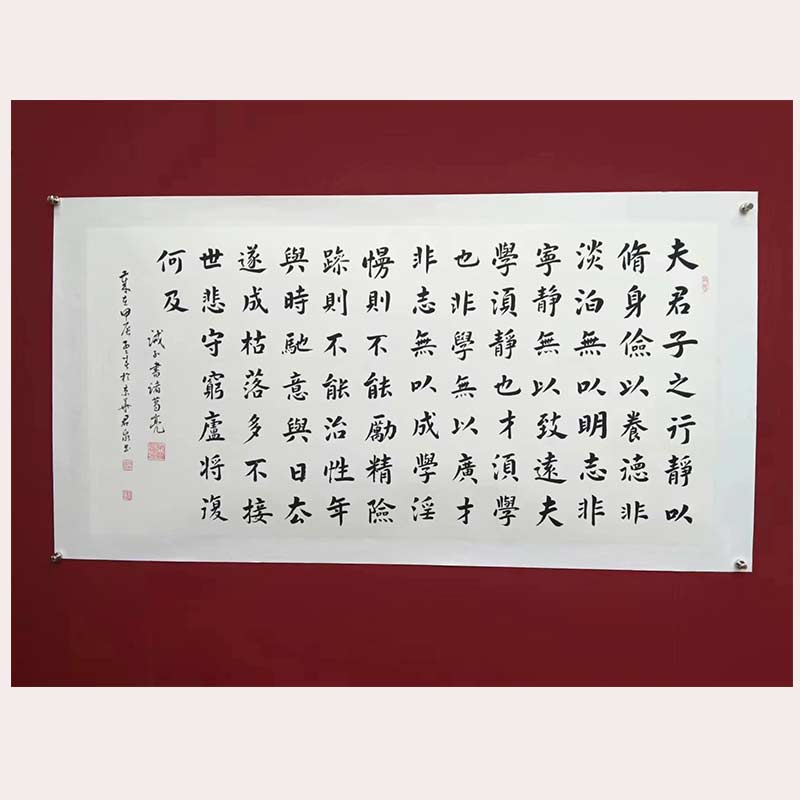 夫君子之行靜以
脩身儉以養德非
淡泊無以明志非
寧靜無以致遠夫
學須靜也才須學
也非學無以廣才
非志無以成學淫
慢則不能勵精險
躁則不能治性年
與時馳意與日去
遂成枯落多不接
世悲守窮廬將復
何及
誡子書諸葛亮
歲在甲辰於京華君書